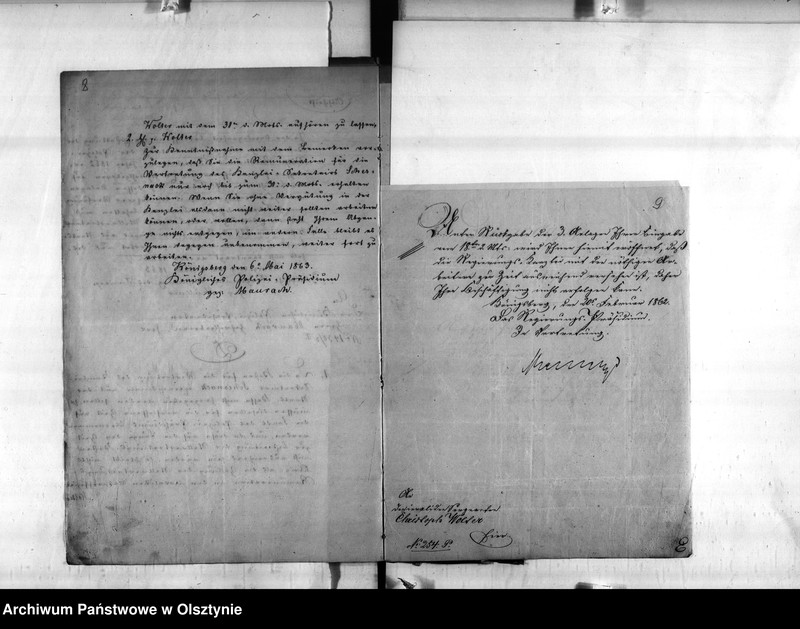 8
Kolter mit dem 31ten d. Mts. aufhören zu lassen,
2. H. p. Kolter
zur Kenntnißnahme mit dem Bemerken vor-
zulegen, daß Sie die Remuneration für die
Vertretung des Kanzlei-Sekretairs
nur noch bis zum 31. d. Mts. erhalten
können. Wenn Sie ohne Vergütung in der
Kanzlei alsdann nicht weiter sollten arbeiten
können, oder wollen, dann steht Ihrem Abgan-
ge nichts entgegen, im andern Falle bleibt es
Ihnen dagegen unbenommen, weiter fort zu
arbeiten.
Königsberg den 6. Mai 1863.
Königliches Polizei-Präsidium
gez. Maurach.
9
Unter Rückgabe der 3 Anlagen Ihrer Eingabe
vom 18ten d. Mts. wird Ihnen hiemit eröffnet, daß
die Regierungs-Kanzlei mit den nöthigen Ar-
beitern zur Zeit ausreichend versehen ist, daher
Ihre Beschäftigung nicht erfolgen kann.
Königsberg, den 20. Februar 1862.
Das Regierungs-Präsidium.
In Vertretung.
An
den
Christoph Kolter
hier
No. 254. P.
Archiwum Państwowe w Olsztynie